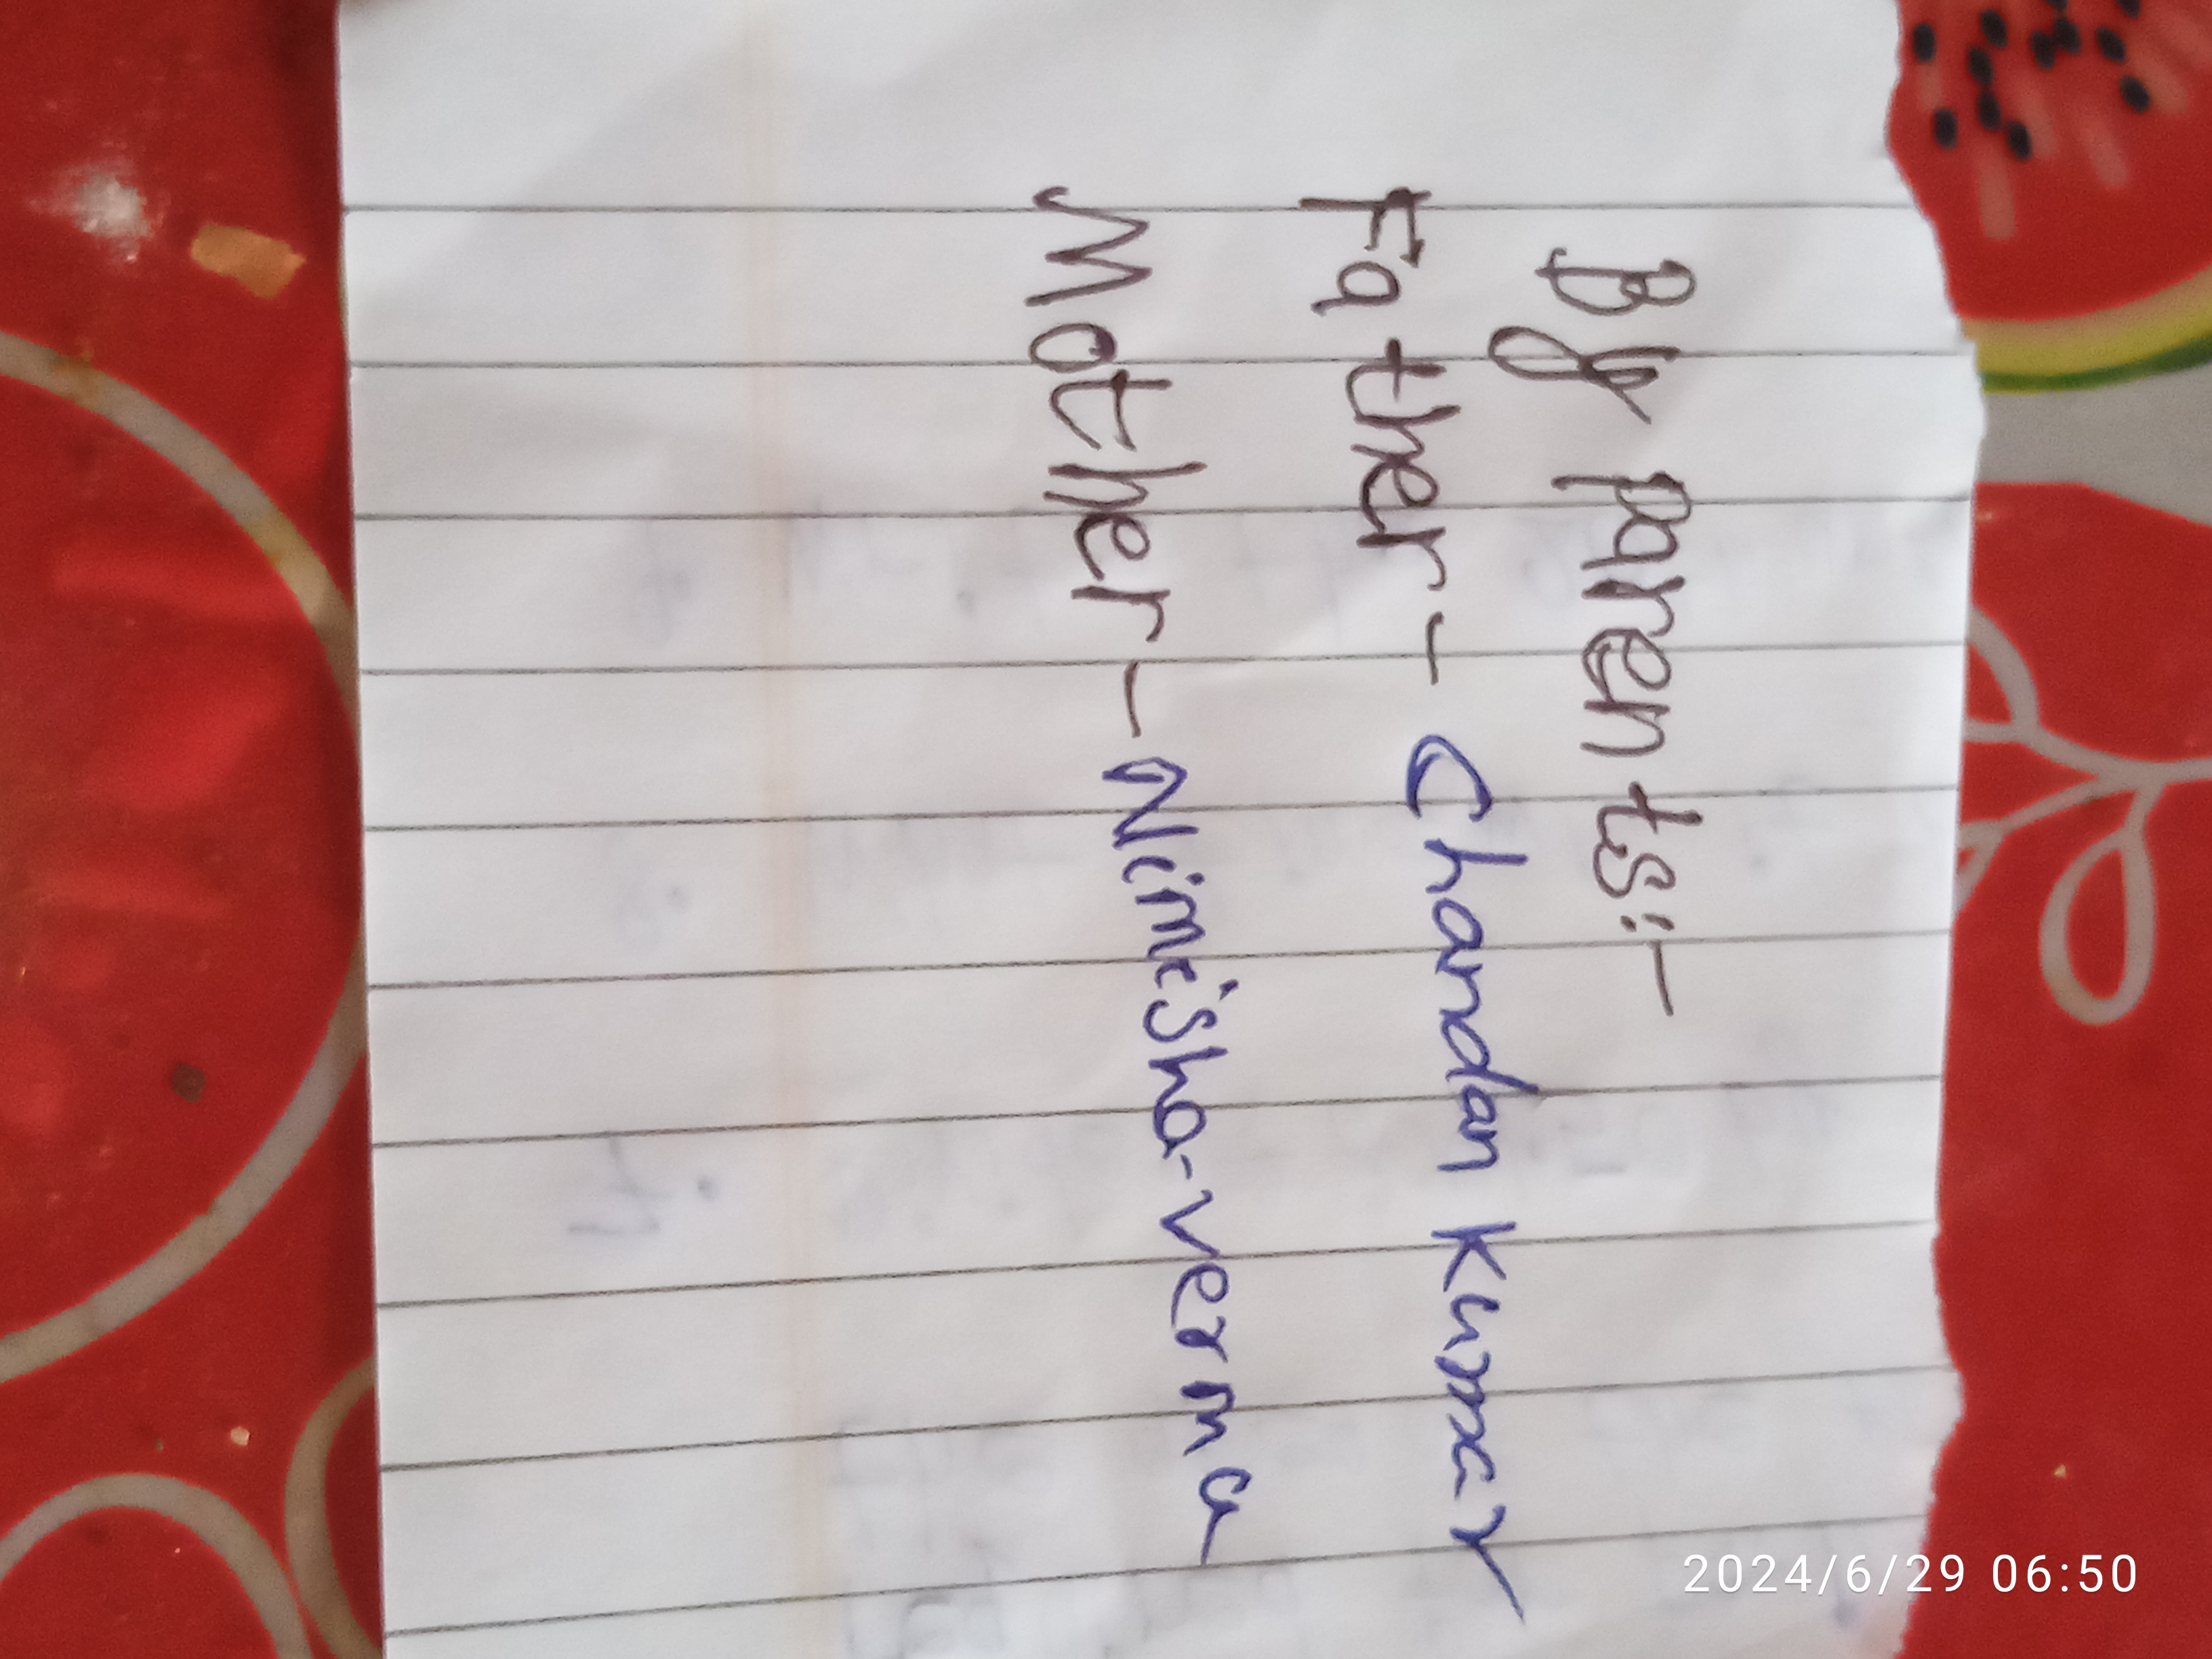 By parents:-
Father- Chandan Kumar
Mother-Nimisha-verma
2024/6/29 06:50